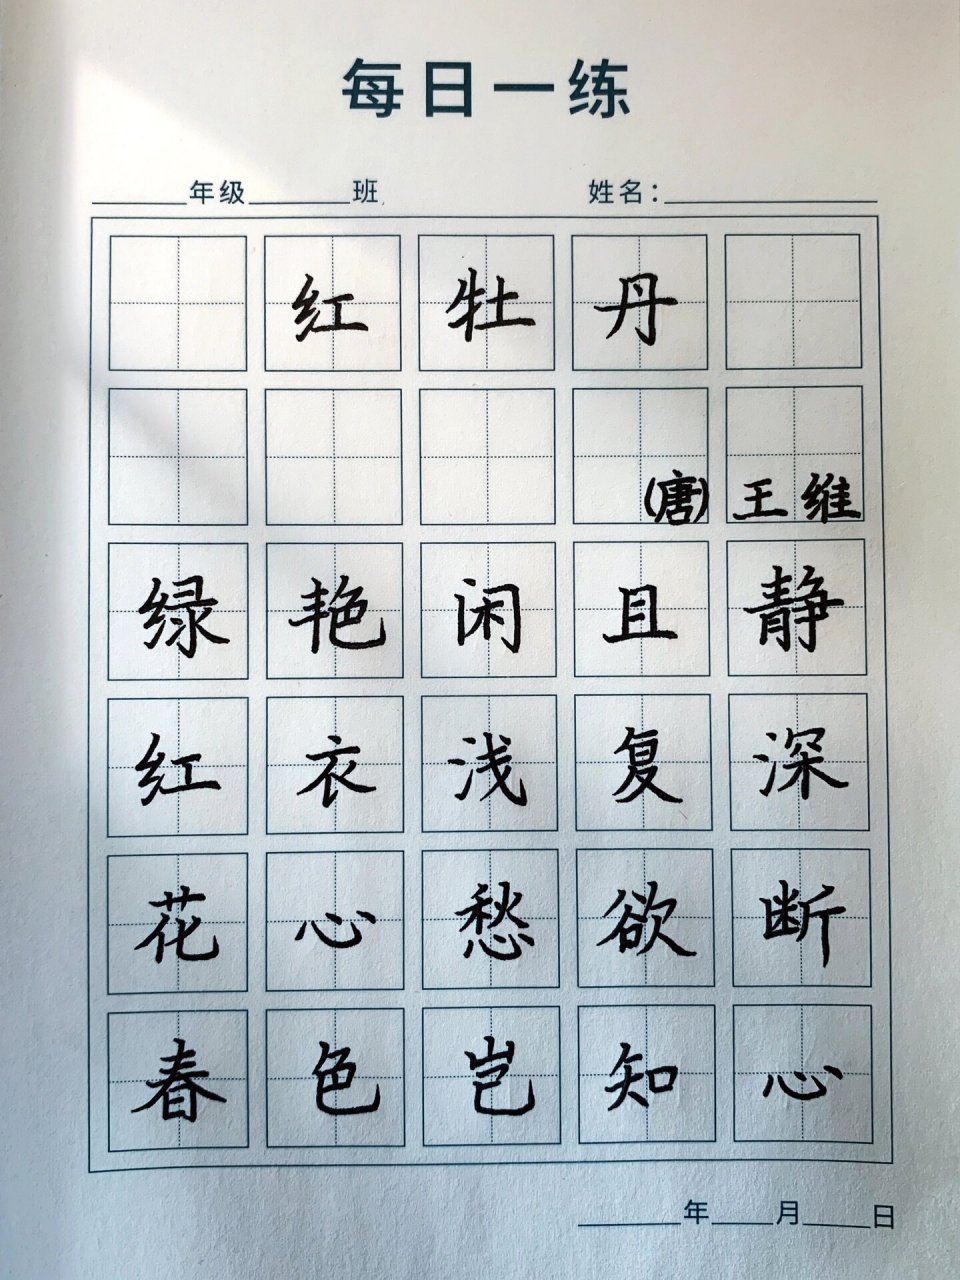 每日一练
____年级____班 姓名：____
红牡丹
(唐) 王维
绿艳闲且静
红衣浅复深
花心愁欲断
春色岂知心
____年____月____日